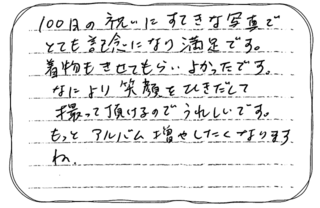 100日の祝いにすてきな写真で
とても記念になり満足です。
着物もきせてもらいよかったです。
なにより笑顔をひきだして
撮って頂けるのでうれしいです。
もっとアルバム増やしたくなります
ね。